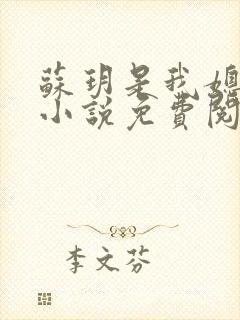 蘇玥是我媳
小說免費閱
李文芬